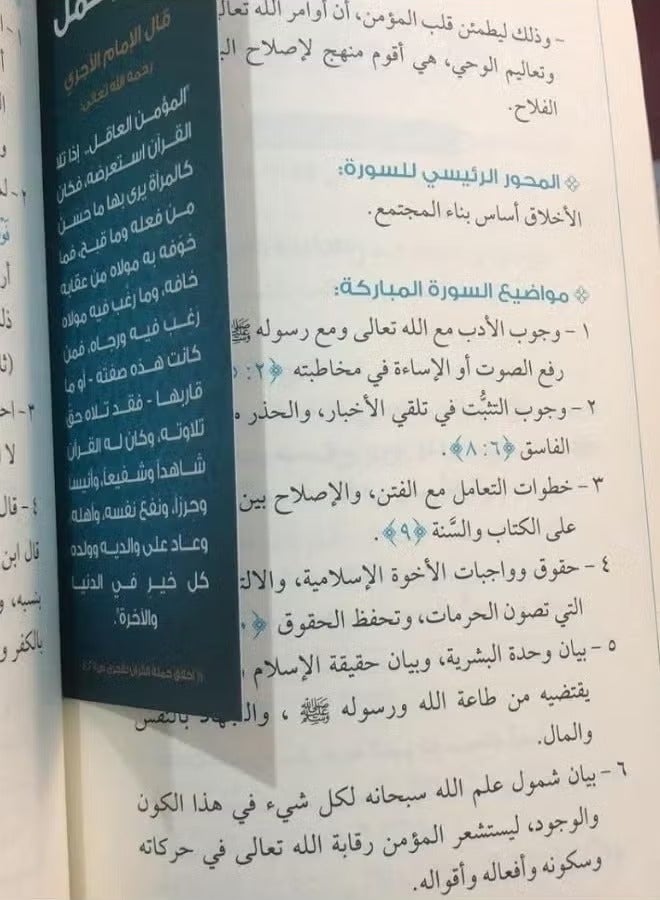 - وذلك ليطمئن قلب المؤمن، أن أوامر الله
وتعاليم الوحي، هي أقوم منهج لإصلاح
الفلاح.
المحور الرئيسي للسورة:
الأخلاق أساس بناء المجتمع.
مواضيع السورة المباركة:
١ - وجوب الأدب مع الله تعالى ومع رسوله ﷺ
رفع الصوت أو الإساءة في مخاطبته
٢ - وجوب التثبُّت في تلقي الأخبار، والحذر
الفاسق ﴿٦: ٨﴾.
٣ - خطوات التعامل مع الفتن، والإصلاح بين
على الكتاب والسَّنة ﴿٩﴾.
٤ - حقوق وواجبات الأخوة الإسلامية،
التي تصون الحرمات، وتحفظ الحقوق
٥ - بيان وحدة البشرية، وبيان حقيقة الإسلام
يقتضيه من طاعة الله ورسوله ﷺ، والجهاد بالنفس
والمال.
٦ - بيان شمول علم الله سبحانه لكل شيء في هذا الكون
والوجود، ليستشعر المؤمن رقابة الله تعالى في حركاته
وسكونه وأفعاله وأقواله.
قال الإمام الآجري
رحمه الله تعالى:
"المؤمن العاقل.. إذا تلا
القرآن استعرضه، فكان
كالمرآة يرى بها ما حسن
من فعله وما قبح، فما
خوّفه به مولاه من عقابه
خافه، وما رغّب فيه مولاه
رغب فيه ورجاه، فمن
كانت هذه صفته - أو ما
قاربها - فقد تلاه حق
تلاوته، وكان له القرآن
شاهداً وشفيعاً، وأنيساً
وحرزاً، ونفع نفسه، وأهله
وعاد على والديه وولده
كل خير في الدنيا
والآخرة".